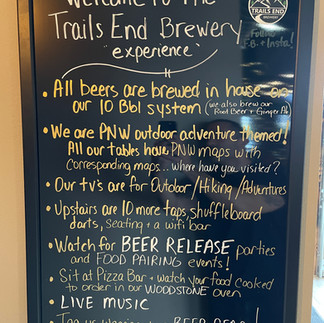 Welcome to The
Trails End Brewery
"experience"
TRAILS END
BREWERY
Follow
F.B. + Insta!
• All beers are brewed in house on
our 10 Bbl system (we also brew our
Root Beer + Ginger Ale
• We are PNW outdoor adventure themed!
All our tables have PNW maps with
corresponding maps... where have you visited?
• Our tv's are for Outdoor/Hiking/Adventures
• Upstairs are 10 more taps, shuffleboard
darts, seating + a wifi bar
• Watch for BEER RELEASE parties
and FOOD PAIRING events!
• Sit at Pizza Bar + watch your food cooked
to order in our WOODSTONE oven
• LIVE MUSIC